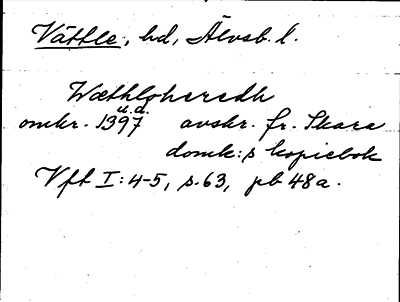 Vättle, hd, Älvsb. l.
Wæthlghæredh
u.d.
omkr. 1397 avskr. fr. Skara
domk:s kopiebok
Vft I: 4-5, s. 63, pb 48a.